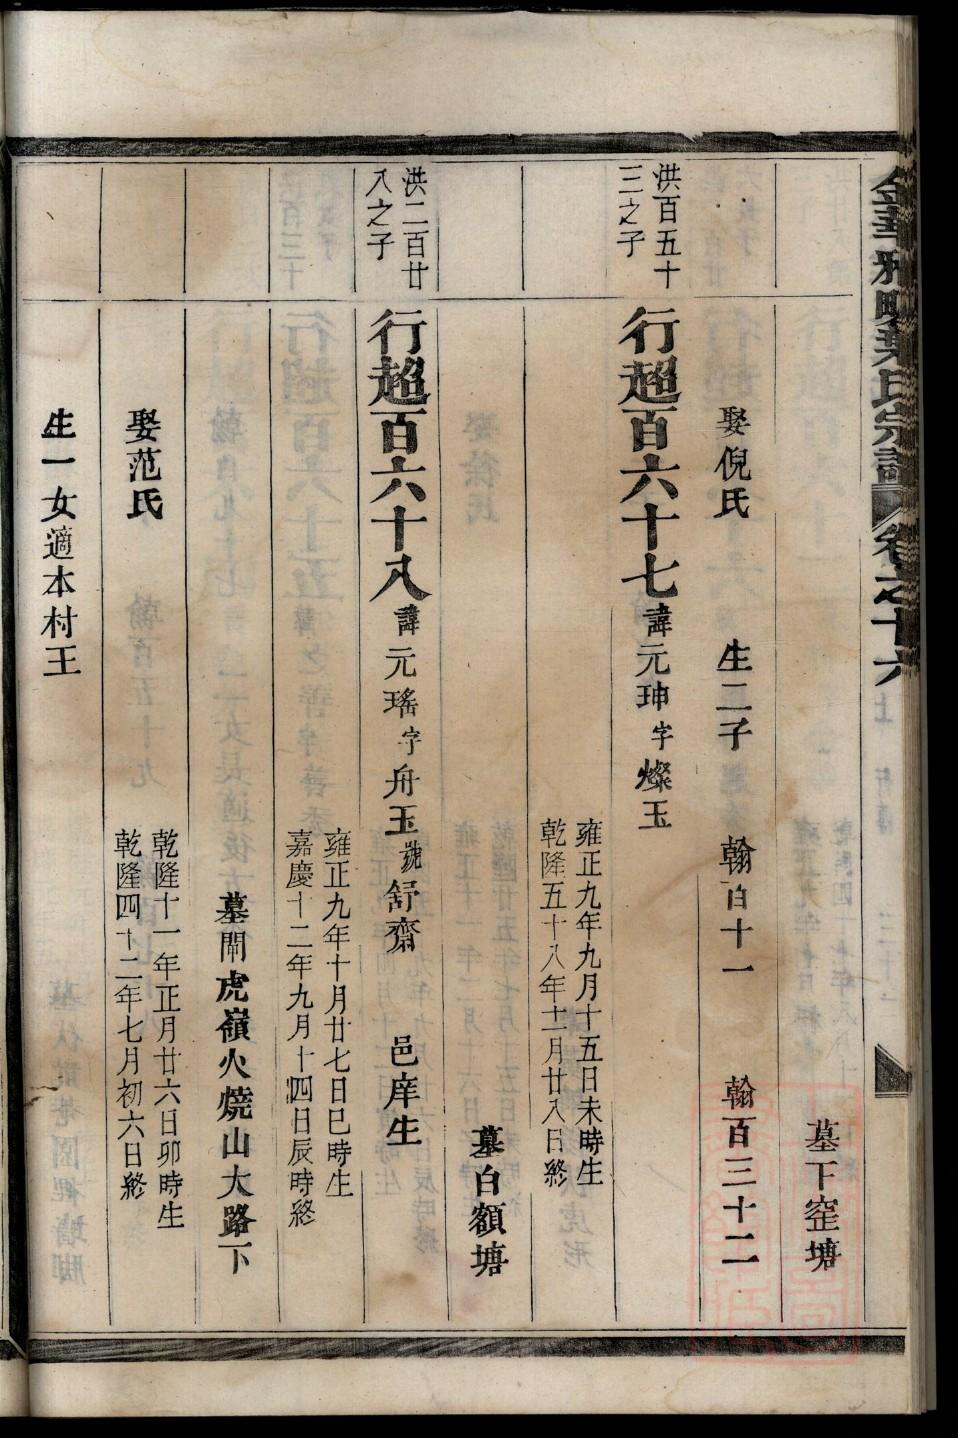 墓下窐塘
娶倪氏 生二子 翰百十一 翰百三十二
洪百五十
三之子
行超百六十七諱元珅字燦玉
雍正九年九月十五日未時生
乾隆五十八年十二月廿八日終
墓白額塘
洪二百廿
八之子
行超百六十八諱元瑤字舟玉號舒齋 邑庠生
雍正九年十月廿七日巳時生
嘉慶十二年九月十四日辰時終
墓閙虎嶺火燒山大路下
娶范氏
乾隆十一年正月廿六日卯時生
乾隆四十二年七月初六日終
生一女適本村王